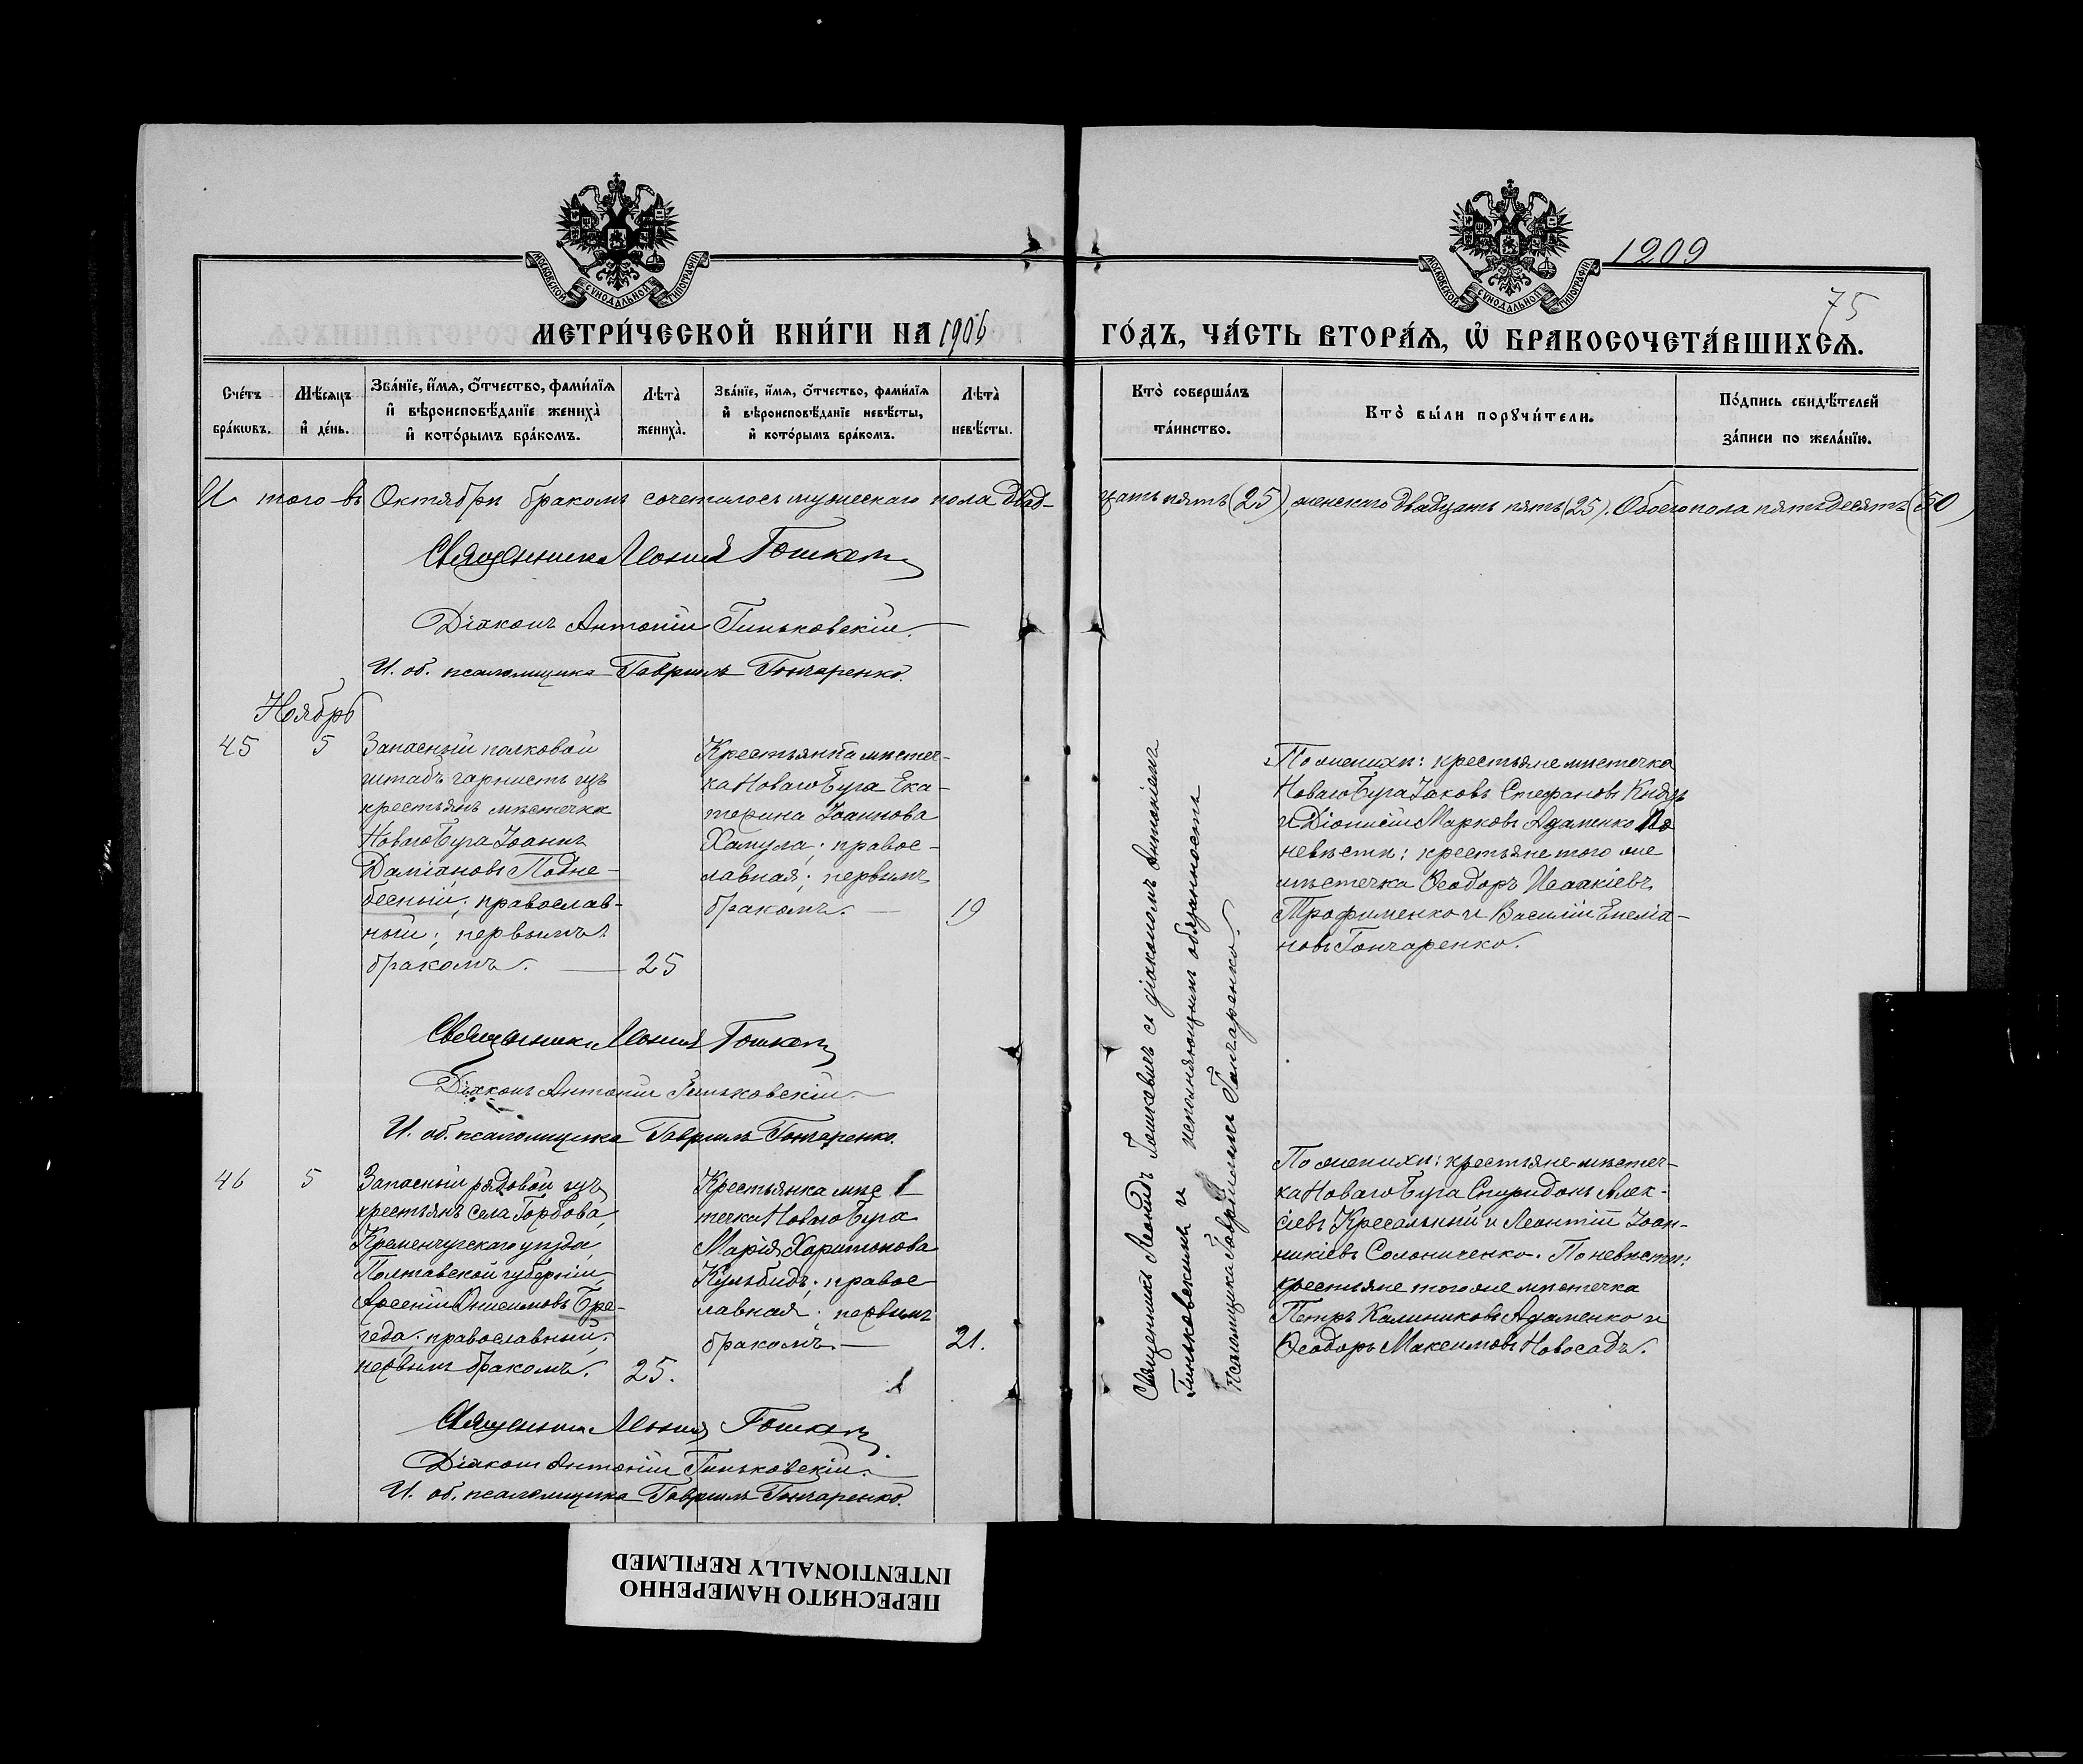 1209
75
МОСКОВСКОЙ СѴНОДАЛЬНОЙ ТИПОГРАФІИ
МОСКОВСКОЙ СѴНОДАЛЬНОЙ ТИПОГРАФІИ
МЕТРИ́ЧЕСКОЙ КНИ́ГИ НА 1906 ГО́ДЪ, ЧА́СТЬ ВТОРА́Ѧ, Ѡ҆ БРАКОСОЧЕТА́ВШИХСѦ.
Сче́тъ бра́кѡвъ.
Мѣ́сѧцъ и҆ де́нь.
Зва́нїе, и҆́мѧ, ѻ҆́тчество, фами́лїѧ
и҆ вѣроисповѣ́данїе жениха̀
и҆ кото́рымъ бра́комъ.
Лѣ́та̀ жениха̀.
Зва́нїе, и҆́мѧ, ѻ҆́тчество, фами́лїѧ
и҆ вѣроисповѣ́данїе невѣ́сты,
и҆ кото́рымъ бра́комъ.
Лѣ́та̀ невѣ́сты.
Кто̀ соверша́лъ та́инство.
Кто̀ бы́ли порꙋчи́тели.
По́дпись свидѣ́телей
за́писи по жела́нїю.
И того въ Октябрѣ бракомъ сочеталось мужескаго пола двад-
цать пять (25), женскаго двадцать пять (25). Обоего пола пятьдесятъ (50)
Священникъ Леонидъ Гошкевичъ
Діаконъ Антоній Гиньковскій.
И. об. псаломщика Гавріилъ Гончаренко.
Ноябрь
45
5
Запасный полковой
штабъ горнистъ изъ
крестьянъ мѣстечка
Новаго Буга Іоаннъ
Даміановъ Подне-
бесный; православ-
ный; первымъ
бракомъ.
25
Крестьянка мѣстеч-
ка Новаго Буга Ека-
терина Іоаннова
Хамула; правос-
лавная; первымъ
бракомъ.
19
Священникъ Леонидъ Гошкевичъ съ діакономъ Антоніемъ
Гиньковскимъ и исполняющимъ обязанность
псаломщика Гавріиломъ Гончаренко.
По женихѣ: крестьяне мѣстечка
Новаго Буга Іаковъ Стефановъ Князь
и Діонисій Марковъ Адаменко По
невѣстѣ: крестьяне того же
мѣстечка Ѳеодоръ Исаакіевъ
Трофименко и Василій Емеліа-
новъ Гончаренко.
Священникъ Леонидъ Гошкевичъ
Діаконъ Антоній Гиньковскій.
И. об. псаломщика Гавріилъ Гончаренко.
46
5
Запасный рядовой изъ
крестьянъ села Горбова,
Кременчугскаго уѣзда,
Полтавской губерніи,
Арсеній Онисимовъ Бре-
геда; православный;
первымъ бракомъ.
25.
Крестьянка мѣс
течка Новаго Буга
Марія Харитонова
Кульбидъ; правос
лавная; первымъ
бракомъ.
21.
По женихѣ: крестьяне мѣстеч-
ка Новаго Буга Спиридонъ Алек-
сіевъ Кресальный и Леонтій Іоан-
никіевъ Солониченко. По невѣстѣ:
крестьяне того же мѣстечка
Петръ Калиниковъ Адаменко и
Ѳеодоръ Максимовъ Новосадъ.
Священникъ Леонидъ Гошкевичъ
Діаконъ Антоній Гиньковскій.
И. об. псаломщика Гавріилъ Гончаренко.
ПЕРЕСНЯТО НАМЕРЕННО
INTENTIONALLY REFILMED